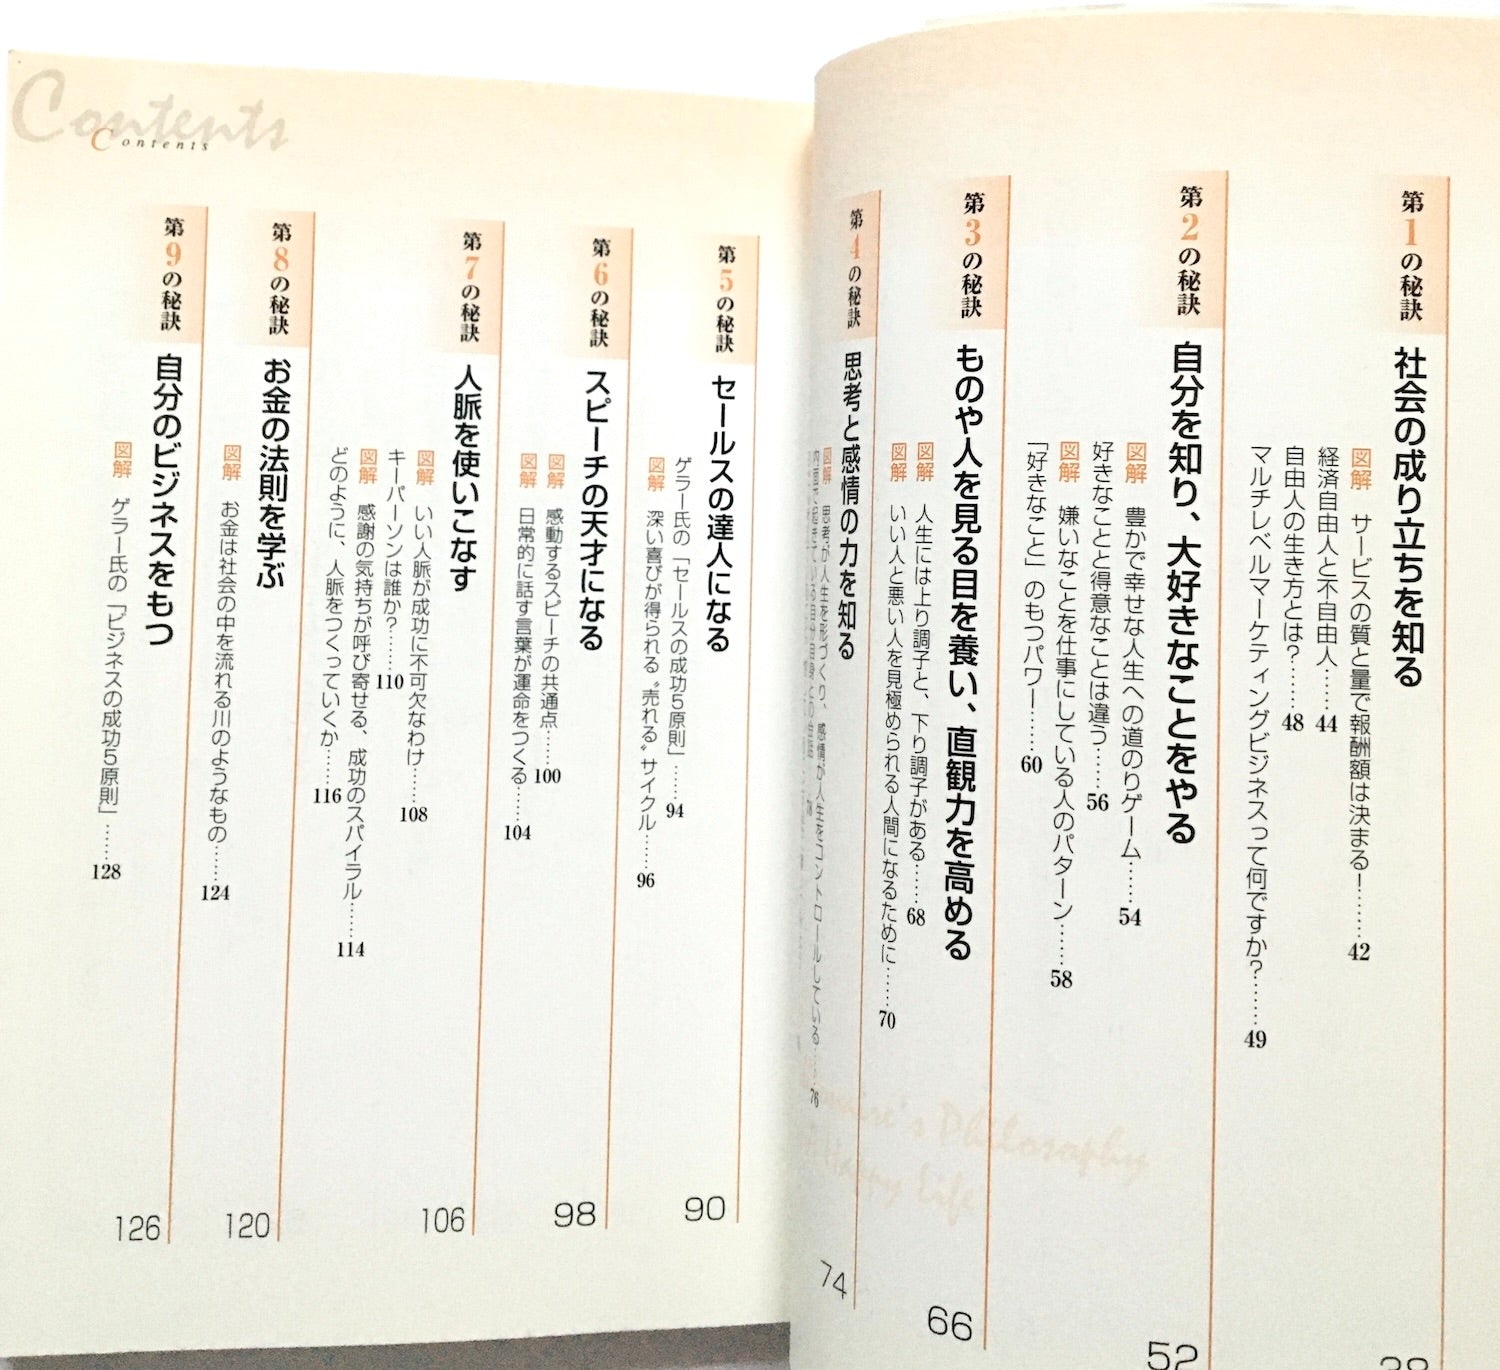 第1の秘訣 社会の成り立ちを知る
図解 サービスの質と量で報酬額は決まる!……42
経済自由人と不自由人……44
自由人の生き方とは?……48
マルチレベルマーケティングビジネスって何ですか?……49
第2の秘訣 自分を知り、大好きなことをやる 52
図解 豊かで幸せな人生への道のりゲーム……54
好きなことと得意なことは違う……56
図解 嫌いなことを仕事にしている人のパターン……58
「好きなこと」のもつパワー……60
第3の秘訣 ものや人を見る目を養い、直観力を高める 66
図解 人生には上り調子と、下り調子がある……68
図解 いい人と悪い人を見極められる人間になるために……70
第4の秘訣 思考と感情の力を知る 74
図解 思考が人生を形づくり、感情が人生をコントロールしている……76
Contents
Contents
第5の秘訣 セールスの達人になる 90
ゲラー氏の「セールスの成功5原則」……94
図解 深い喜びが得られる〝売れる〟サイクル……96
第6の秘訣 スピーチの天才になる 98
図解 感動するスピーチの共通点……100
図解 日常的に話す言葉が運命をつくる……104
第7の秘訣 人脈を使いこなす 106
図解 いい人脈が成功に不可欠なわけ……108
キーパーソンは誰か?……110
図解 感謝の気持ちが呼び寄せる、成功のスパイラル……114
どのように、人脈をつくっていくか……116
第8の秘訣 お金の法則を学ぶ 120
図解 お金は社会の中を流れる川のようなもの……124
第9の秘訣 自分のビジネスをもつ 126
図解 ゲラー氏の「ビジネスの成功5原則」……128